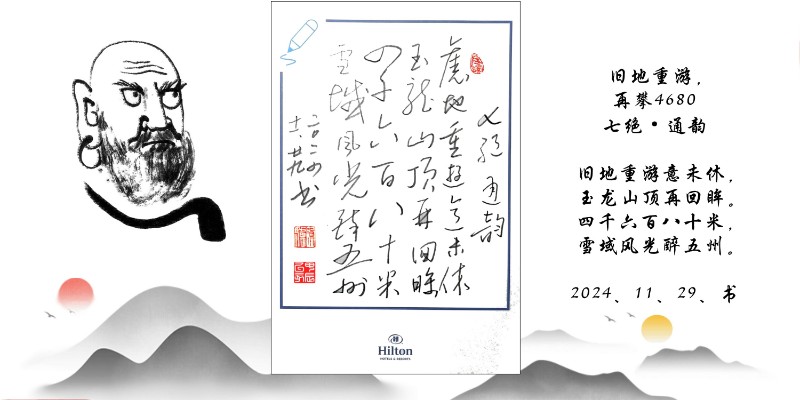 七绝通韵
舊地重遊意未休
玉龙山顶再回眸
四千六百八十米
雪域风光醉五州
二〇二四
十一廿九书
Hilton
HOTELS & RESORTS
旧地重游，
再攀4680
七绝·通韵
旧地重游意未休，
玉龙山顶再回眸。
四千六百八十米，
雪域风光醉五州。
2024、11、29、书